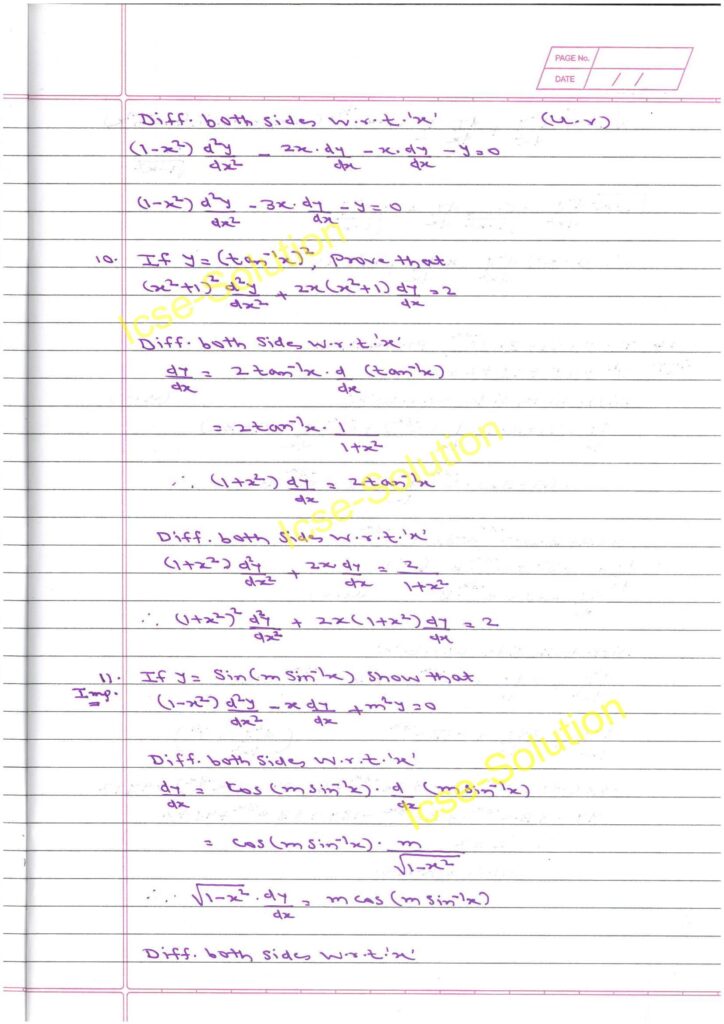 PAGE No.
DATE / /
Diff. both sides w.r.t. 'x' (u.v)
(1-x²) d²y/dx² - 2x. dy/dx - x. dy/dx - y=0
(1-x²) d²y/dx² - 3x. dy/dx - y=0
10. If y=(tan⁻¹x)², prove that
(x²+1)² d²y/dx² + 2x(x²+1) dy/dx = 2
Diff. both sides w.r.t. 'x'
dy/dx = 2tan⁻¹x. d/dx (tan⁻¹x)
= 2tan⁻¹x. 1/1+x²
∴ (1+x²) dy/dx = 2tan⁻¹x
Diff. both sides w.r.t. 'x'
(1+x²) d²y/dx² + 2x dy/dx = 2/1+x²
∴ (1+x²)² d²y/dx² + 2x(1+x²) dy/dx = 2
11. If y= sin(m sin⁻¹x) show that
Imp. (1-x²) d²y/dx² - x dy/dx + m²y=0
Diff. both sides w.r.t. 'x'
dy/dx = cos(m sin⁻¹x). d/dx (m sin⁻¹x)
= cos(m sin⁻¹x). m/√1-x²
∴ √1-x². dy/dx = m cos(m sin⁻¹x)
Diff. both sides w.r.t. 'x'
Icse-Solution
Icse-Solution
Icse-Solution